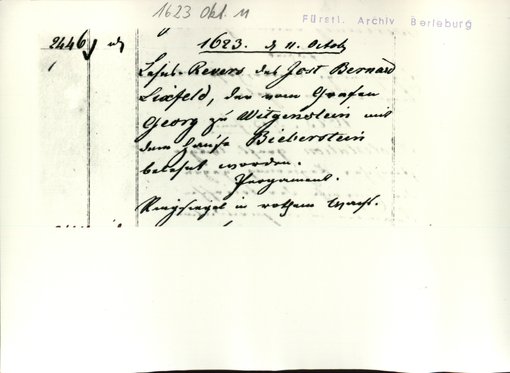 1623 Okt. 11
Fürstl. Archiv Berleburg
2446
1623. d 11. Octob
Lehns-Revers des Jost Bernard
Lixfeld, der vom Grafen
Georg zu Witgenstein mit
dem Hause Bieberstein
belehnt worden.
Pergament.
Ringsiegel in rothem Wachs.